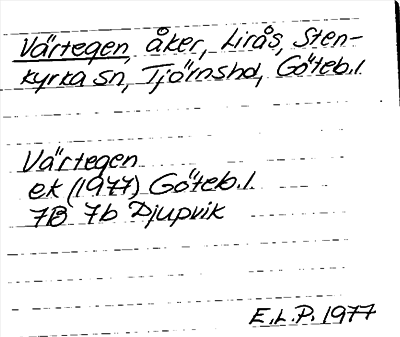 Värtegen, åker, Lirås, Sten-
kyrka sn, Tjörnshd, Göteb.l.
Värtegen
ek (1977) Göteb.l.
7B 7b Djupvik
E.L.P. 1977